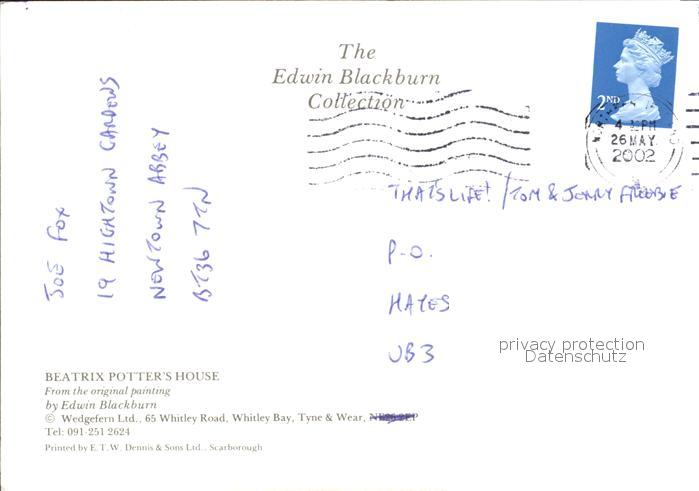 The
Edwin Blackburn
Collection
2ND
4 PM
26 MAY
2002
THATS LIFE! / TOM & JERRY FREEBIE
P-O.
HAYES
UB3
JOE FOX
19 HIGHTOWN GARDENS
NEWTOWN ABBEY
BT36 7TN
privacy protection
Datenschutz
BEATRIX POTTER'S HOUSE
From the original painting
by Edwin Blackburn
© Wedgefern Ltd., 65 Whitley Road, Whitley Bay, Tyne & Wear,
Tel: 091-251 2624
Printed by E.T.W. Dennis & Sons Ltd., Scarborough